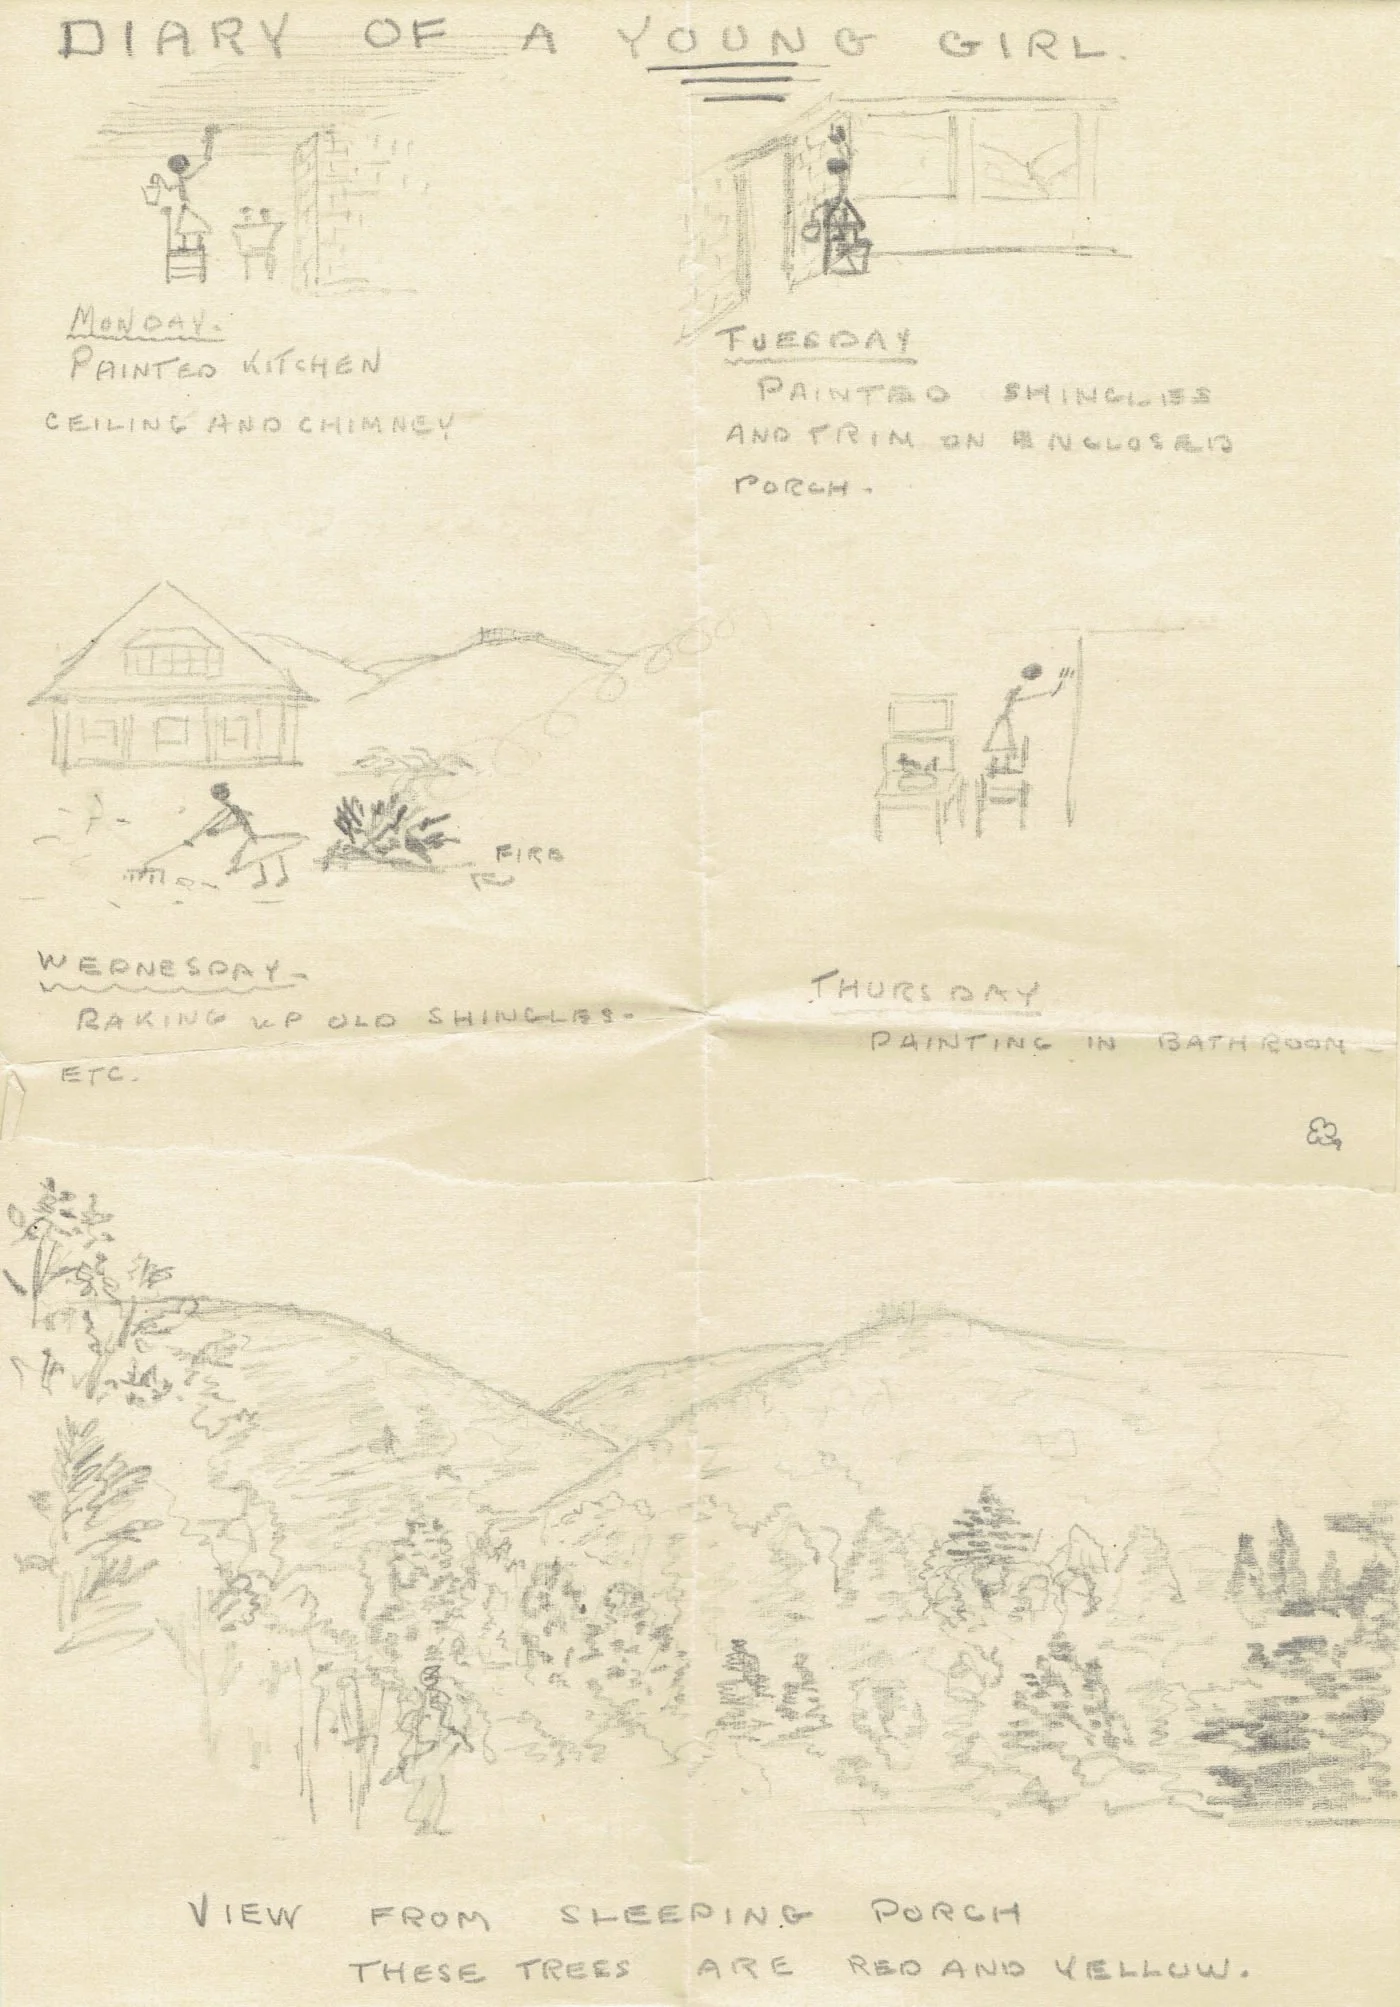 DIARY OF A YOUNG GIRL.
MONDAY.
PAINTED KITCHEN
CEILING AND CHIMNEY
TUESDAY
PAINTED SHINGLES
AND TRIM ON ENCLOSED
PORCH.
FIRE
WEDNESDAY.
RAKING UP OLD SHINGLES.
ETC.
THURSDAY
PAINTING IN BATHROOM
VIEW FROM SLEEPING PORCH
THESE TREES ARE RED AND YELLOW.